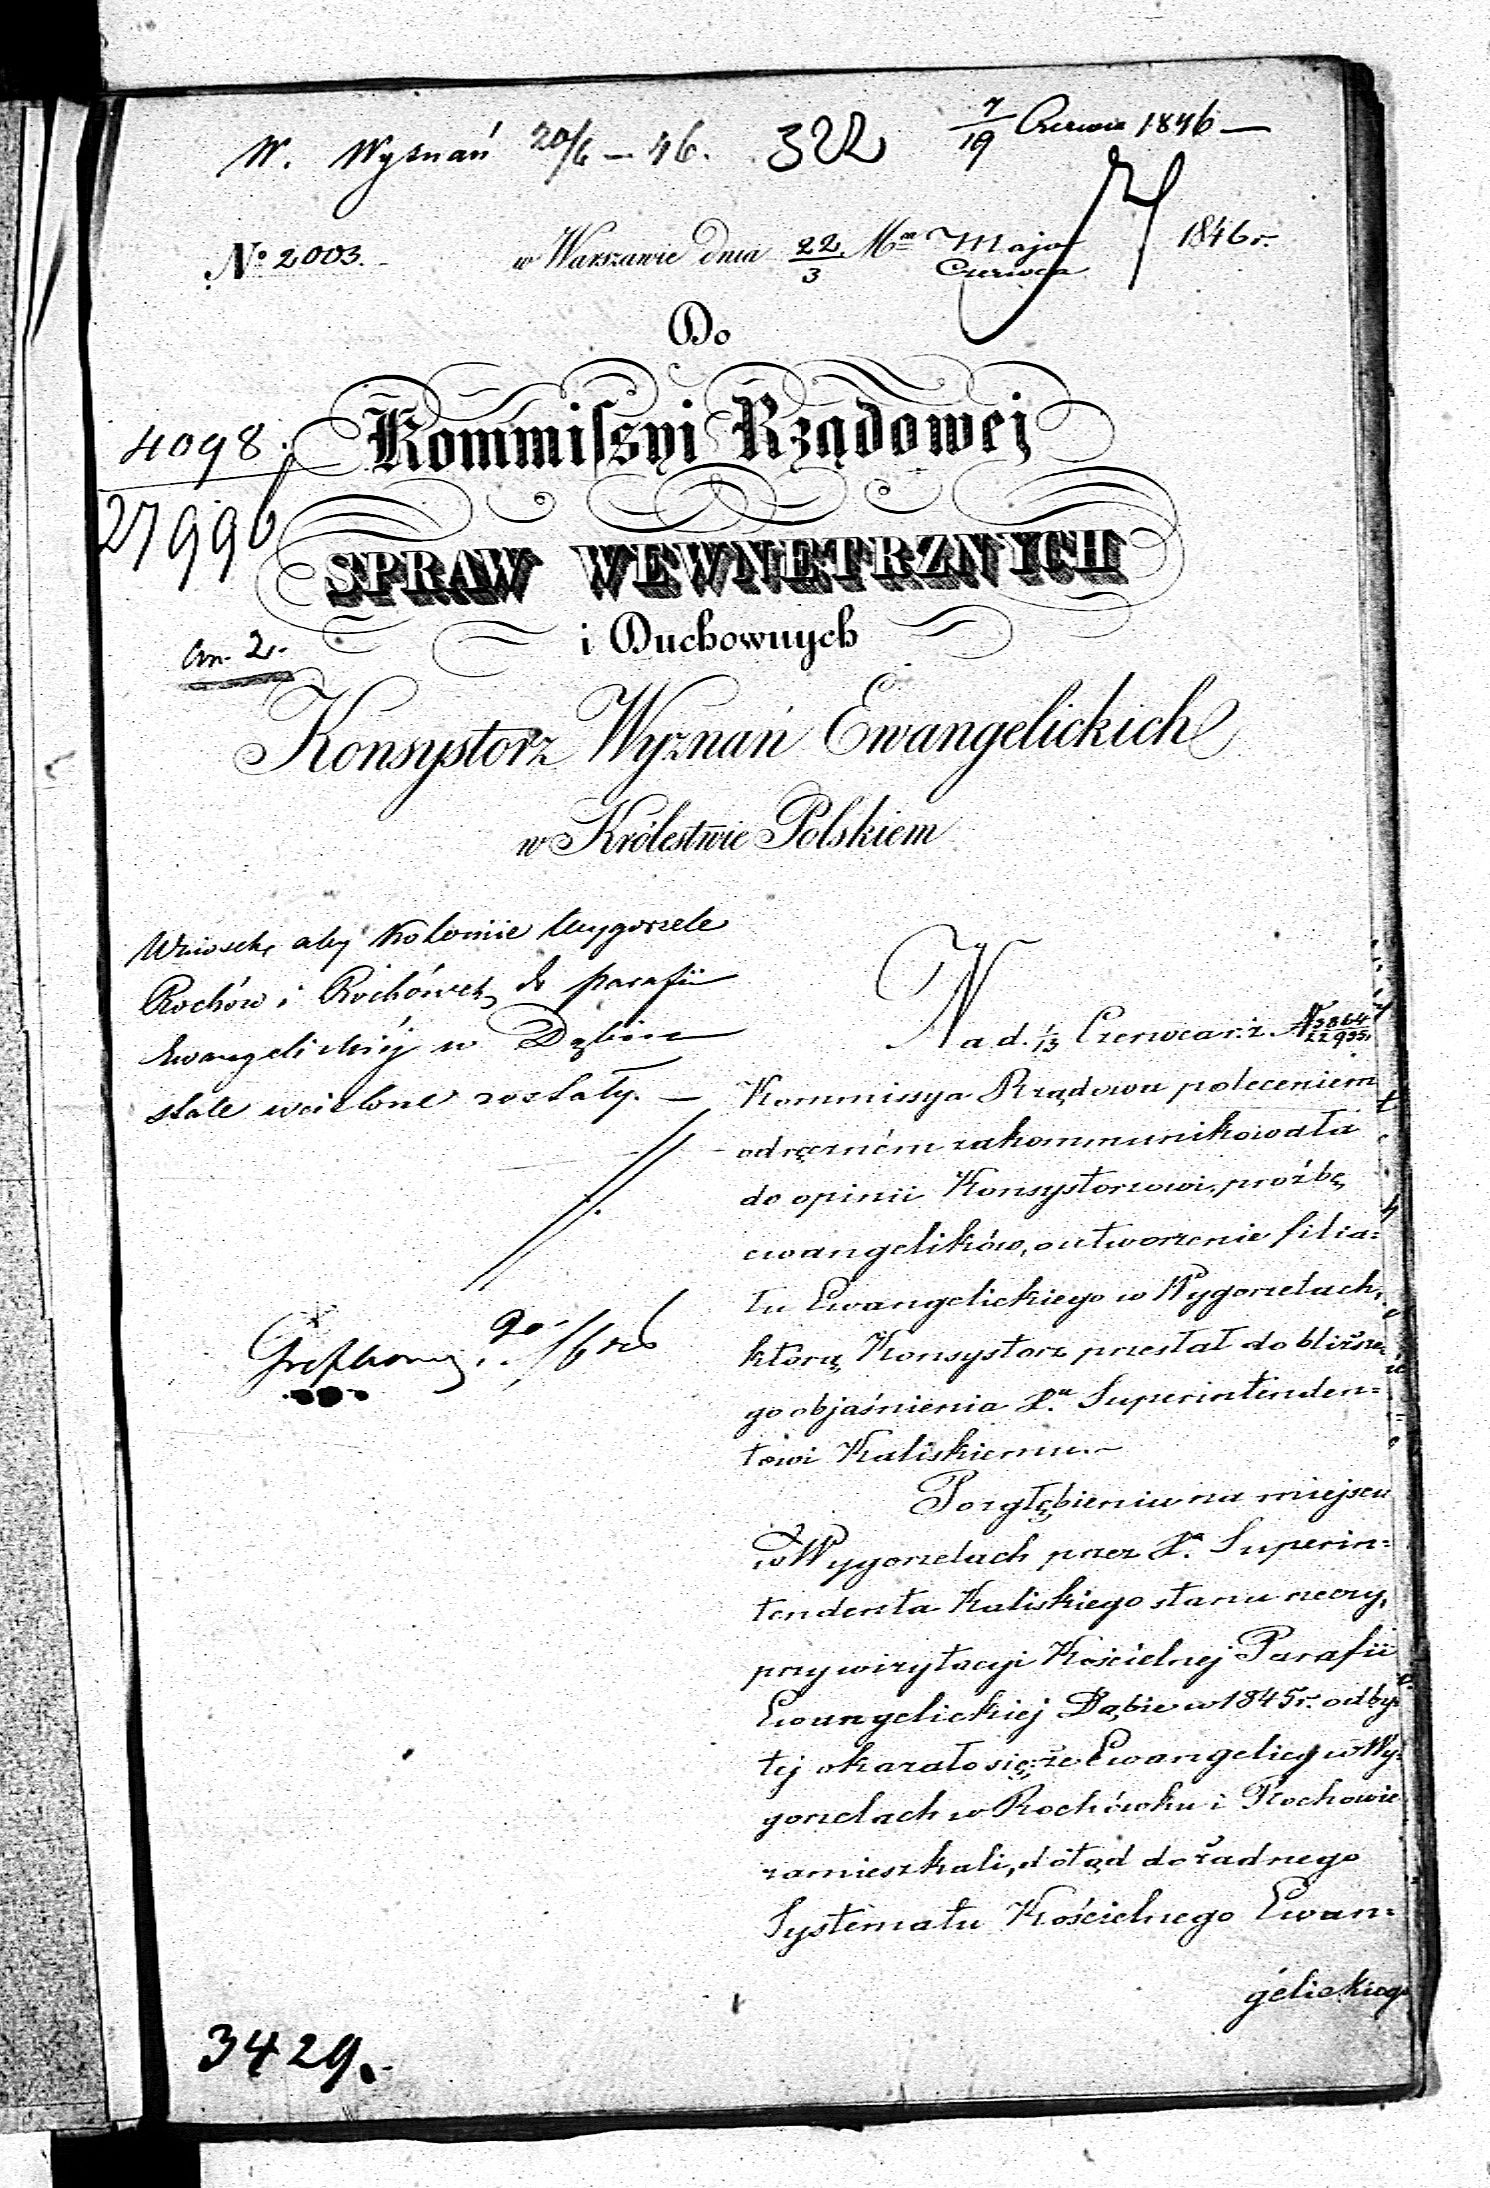 W. Wyznań 20/6 – 46. 322 7/19 Czerwca 1846 —
No 2003. w Warszawie dnia 22/3 Mca Maja/Czerwca 1846 r.
Do
Kommiſsyi Rządowej
4098.
27996
SPRAW WEWNĘTRZNYCH
i Duchownych
an. 2.
Konsystorz Wyznań Ewangelickich
w Królestwie Polskiem
Wniosek, aby Kolonie Wygorzele
Rochów i Rochówek do parafii
Ewangelickiéj w Dąbiu
stale wcielone zostały. —
Na d. 1/13 Czerwca r: z. N 3864/22935.
Kommissya Rządowa poleceniem
odręczném zakommunikowała
do opinii Konsystorzowi, prożbę
ewangelików, o utworzenie filia=
łu Ewangelickiego w Wygorzelach,
którą Konsystorz przesłał do bliższe
go objaśnienia Xu Superintenden=
towi Kaliskiemu. —
Po zgłębieniu na miejscu
w Wygorzelach przez Xa Superin=
tendenta Kaliskiego stanu rzeczy,
przy wizytacyi Kościelnej Parafii
Ewangelickiej Dąbie w 1845 r. odby
tej okazało się, że Ewangelicy w Wy=
gorzelach w Rochówku i Rochowie
zamieszkali, dotąd do żadnego
Systematu Kościelnego Ewan=
gelickiego
3429.